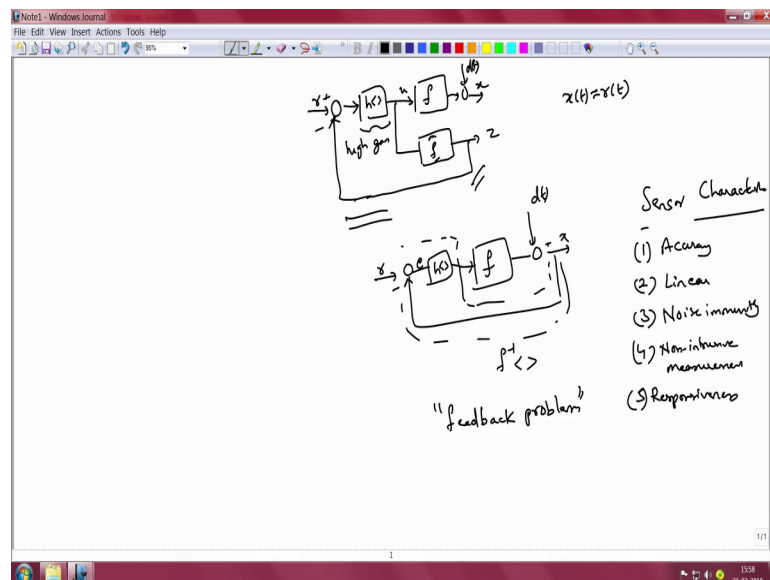 Note1 - Windows Journal
File Edit View Insert Actions Tools Help
95%
B I
d(t)
r + h<> u f x
x(t) = r(t)
-
high gain
f z
d(t)
r e h<> f x
-
f⁻¹<>
"feedback problem"
Sensor Characteris
(1) Accuracy
(2) Linear
(3) Noise immunity
(4) Non-intrusive
measuremen
(5) Responsiveness
1/1
1
15:58